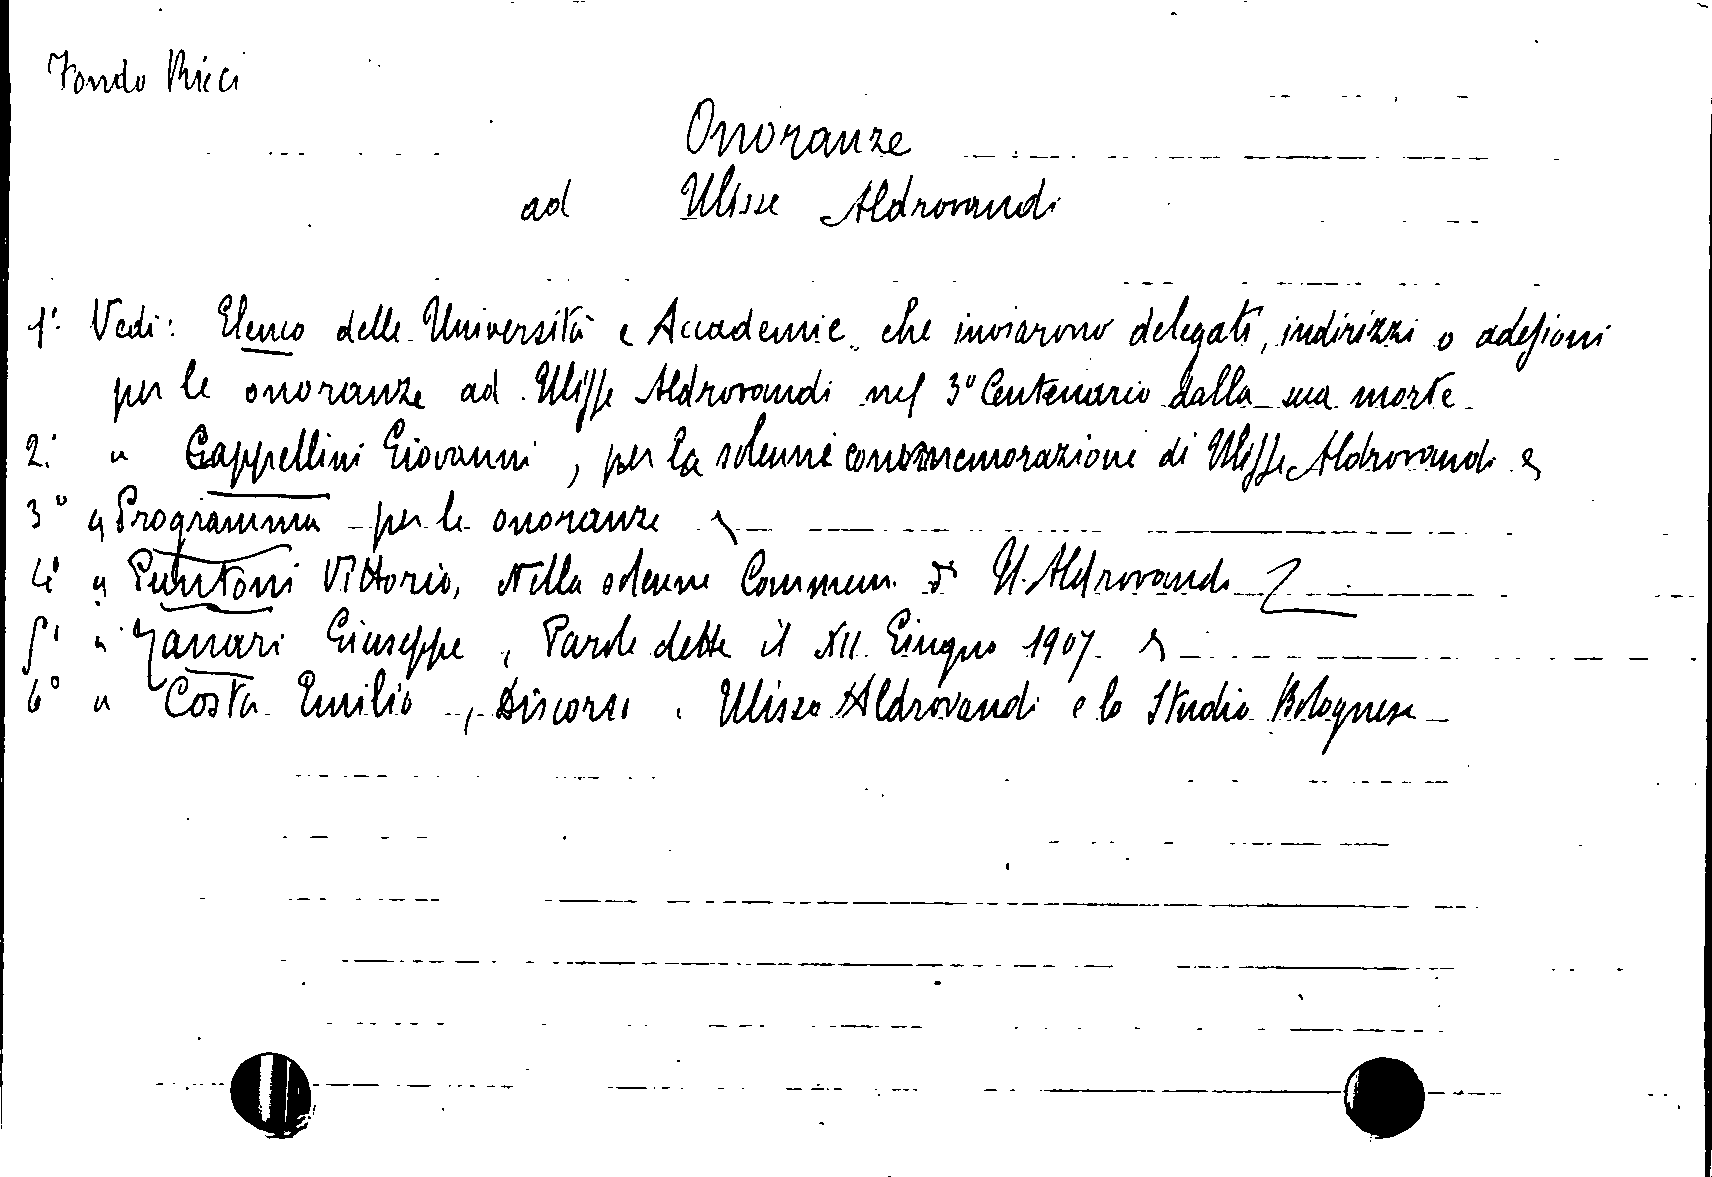 Fondo Ricci
Onoranze
ad Ulisse Aldrovandi
1° Vedi: Elenco delle Università e Accademie che inviarono delegati, indirizzi o adesioni
per le onoranze ad Ulisse Aldrovandi nel 3° Centenario dalla sua morte
2° " Cappellini Giovanni, per la solenne commemorazione di Ulisse Aldrovandi
3° " Programma per le onoranze
4° " Puntoni Vittorio, Nella solenne Commem. di U. Aldrovandi
5° " Zanari Giuseppe, Parole dette il XII Giugno 1907
6° " Costa Emilio, Discorsi. Ulisse Aldrovandi e lo Studio Bolognese